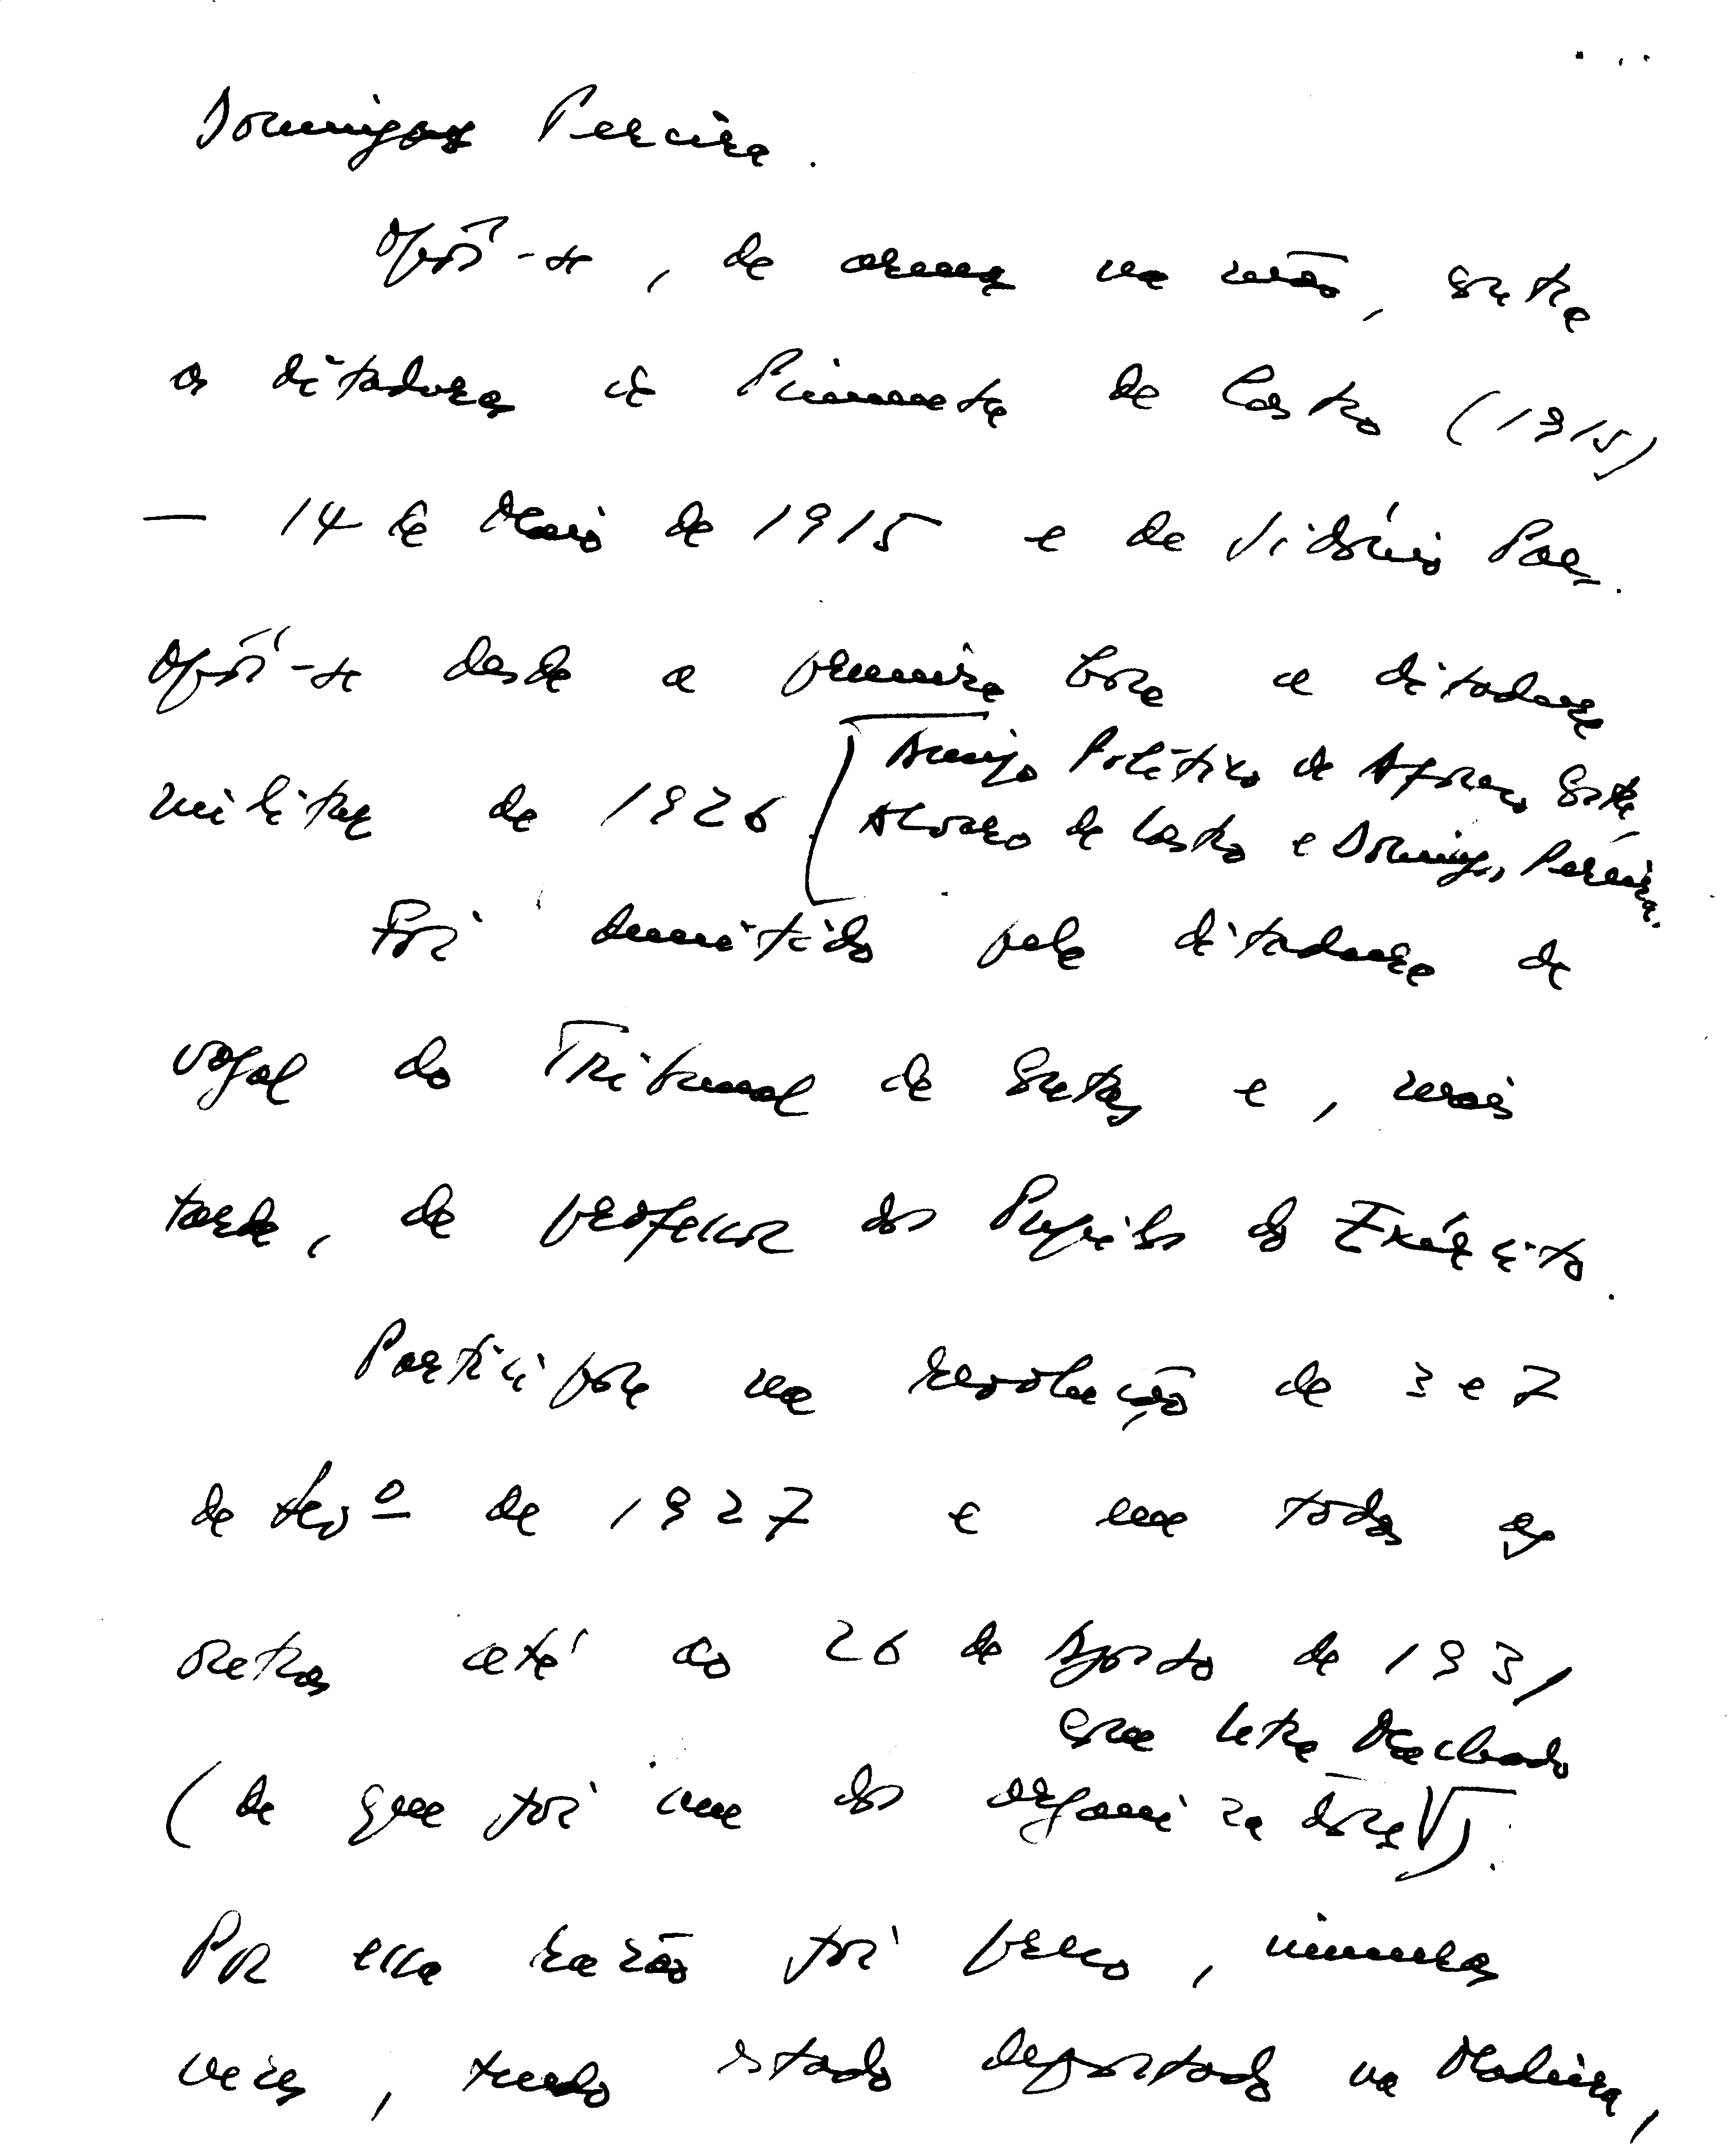 Domingos Pereira.
Opôs-se, de armas na mão, contra
as ditaduras de Pimenta de Castro (1915)
— 14 de Maio de 1915 e de Sidónio Paes.
Opôs-se desde a primeira hora à ditadura
militar de 1926. [Amigo Político de Afonso Costa,
Alvaro de Castro e Domingos Pereira.
Foi demitido pela ditadura de
vogal do Tribunal de Contas e, mais
tarde, de professor dos Pupilos do Exército.
Participou na revolução de 3 e 7
de Fevº de 1927 e em todas as
outras até ao 26 de Agosto de 1931
(de que foi um dos organizadores √ com Utra Machado).
Por essa razão foi preso, inúmeras
vezes, tendo estado deportado na Madeira,